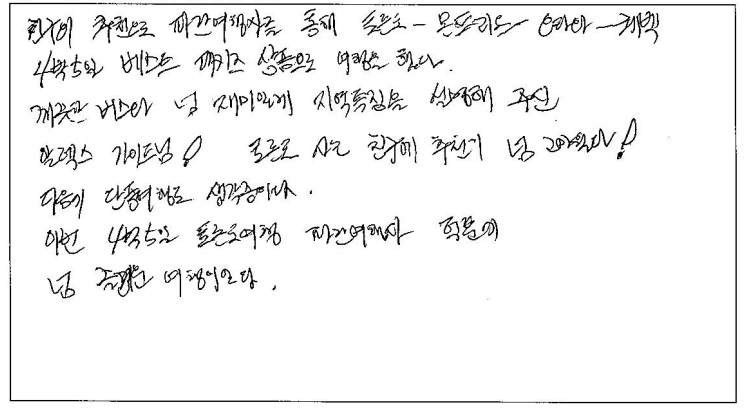 친구의 추천으로 파란여행사를 통해 토론토-몬트리올-오타와-퀘벡
4박5일 베스트 패키지 상품으로 여행을 했다.
깨끗한 버스와 넘 재미있게 지역특징을 설명해 주신
알렉스 가이드님! 토론토 사는 친구에 추천이 넘 고마웠다!
다음에 단풍여행도 생각중이다.
이번 4박5일 토론토여행 파란여행사 덕분에
넘 즐거운 여행이었당.